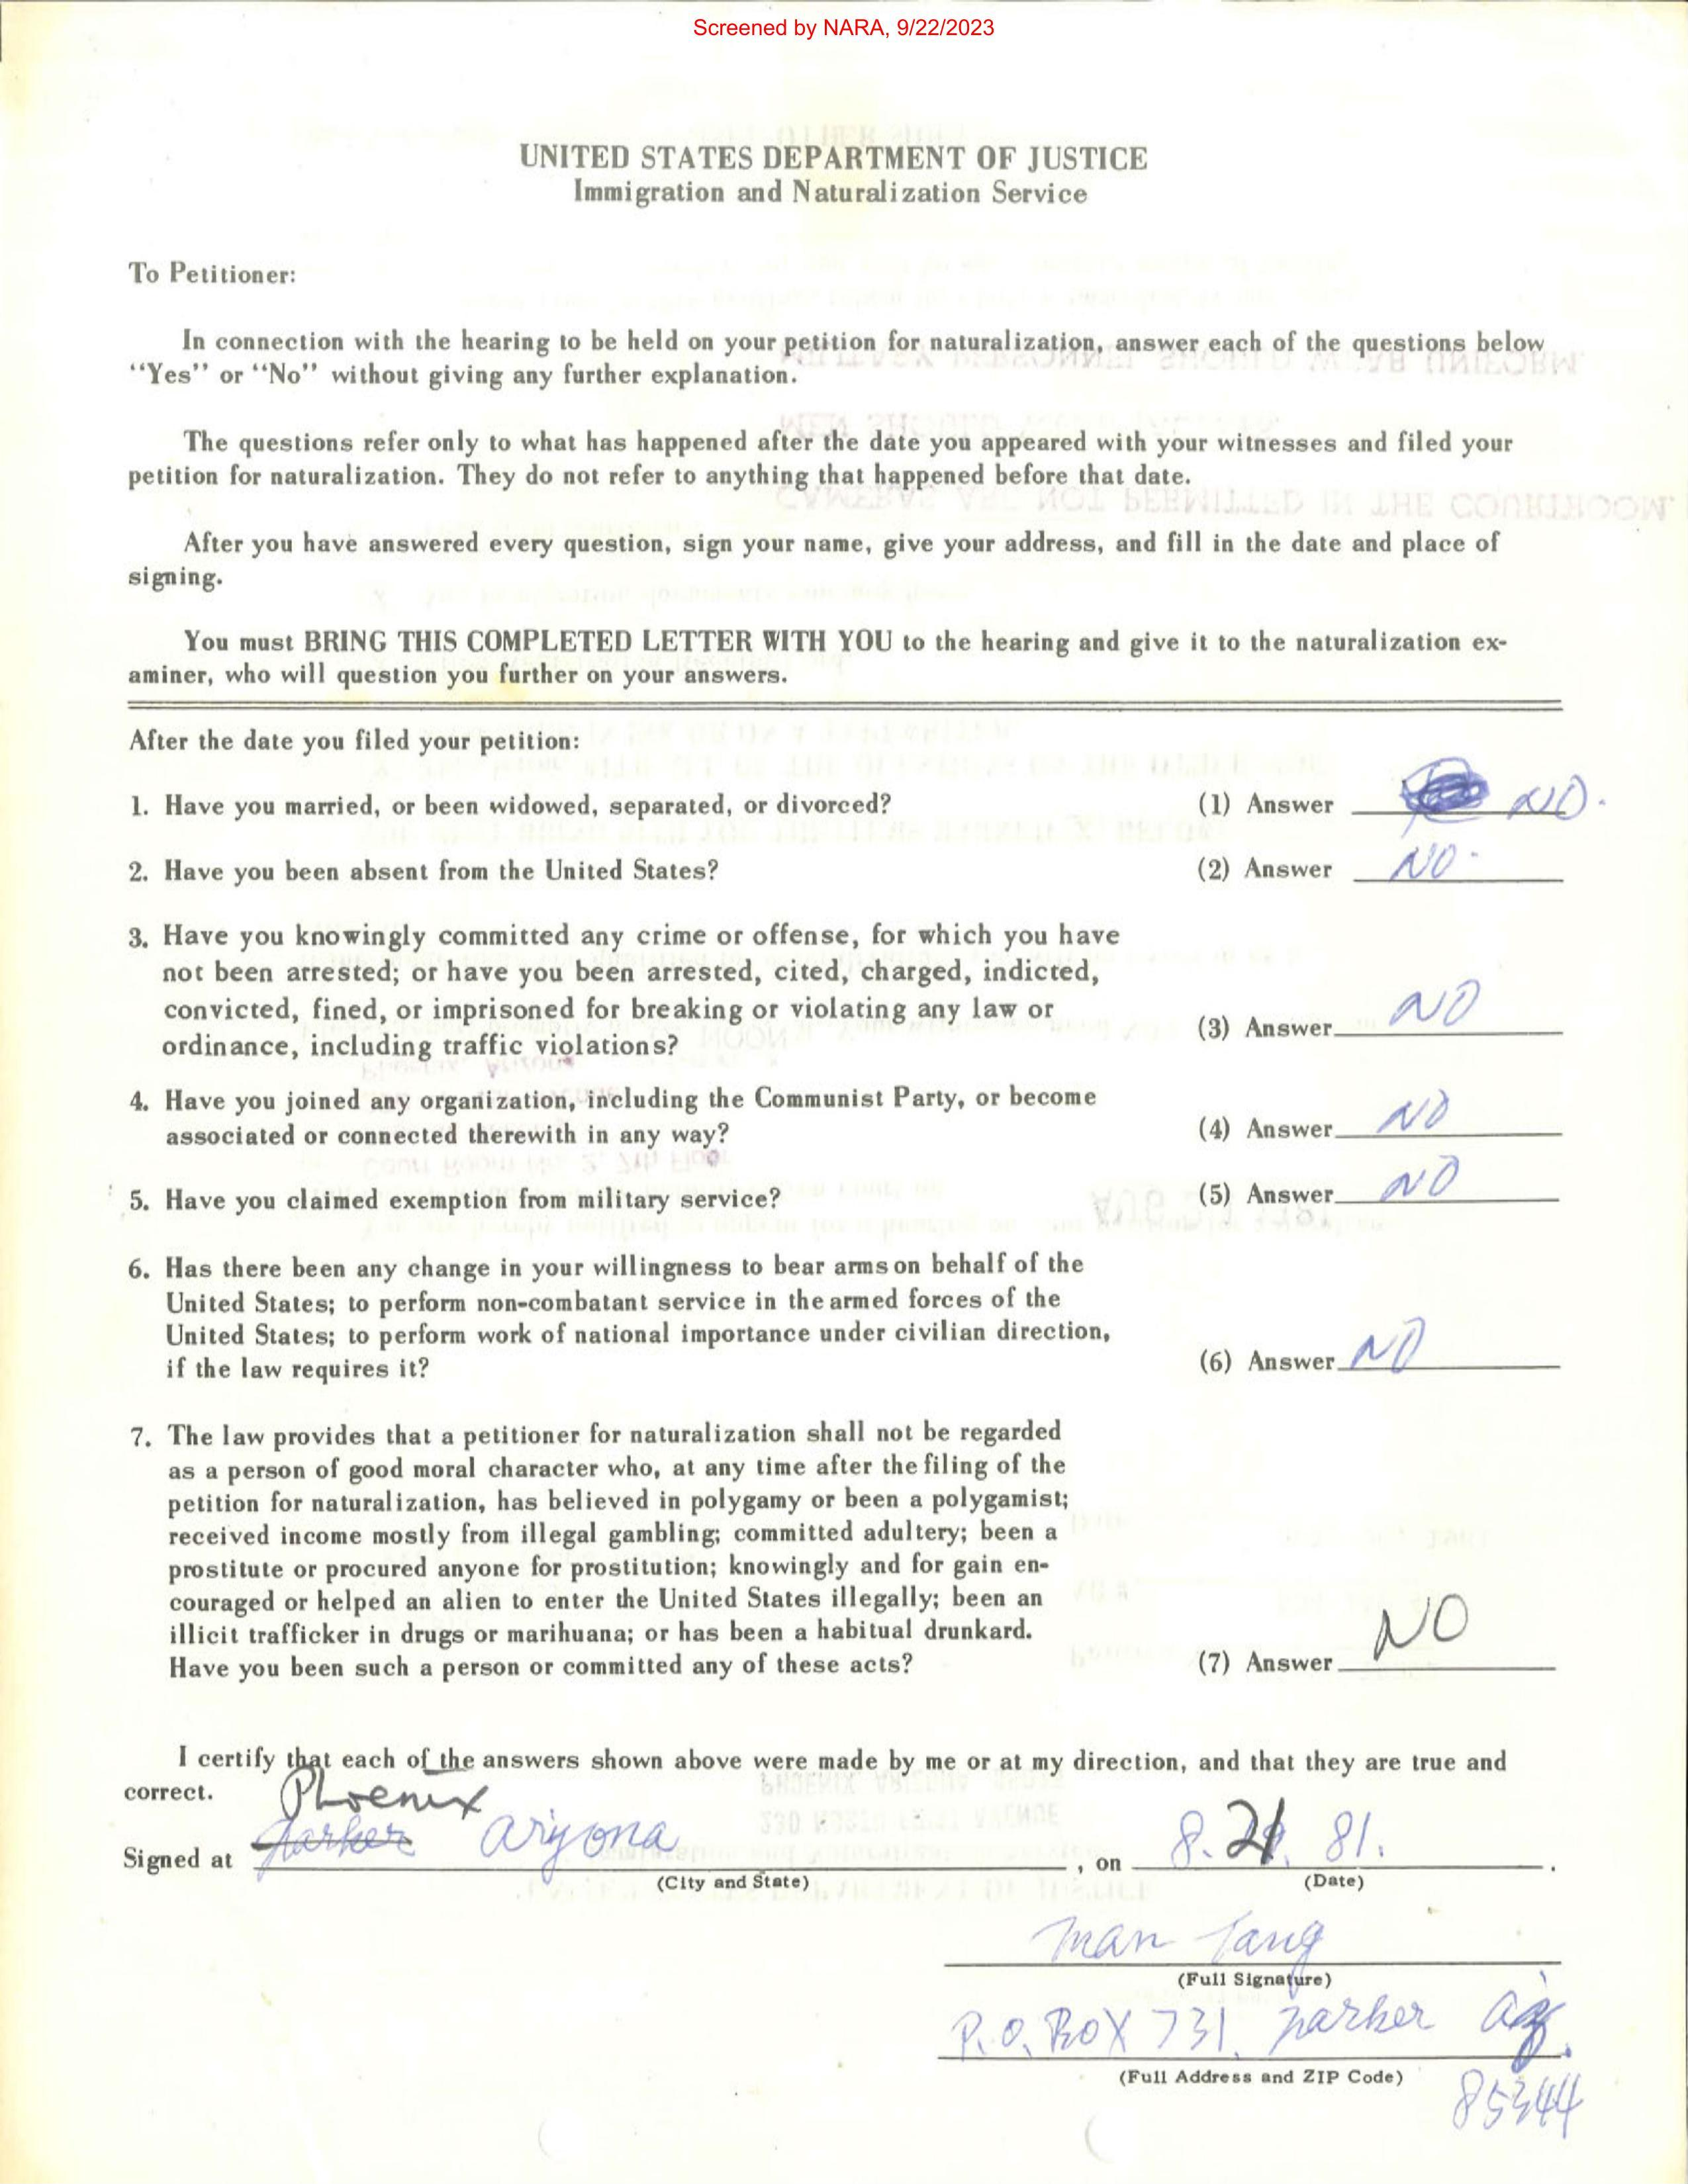 Screened by NARA, 9/22/2023
UNITED STATES DEPARTMENT OF JUSTICE
Immigration and Naturalization Service
To Petitioner:
In connection with the hearing to be held on your petition for naturalization, answer each of the questions below
"Yes" or "No" without giving any further explanation.
The questions refer only to what has happened after the date you appeared with your witnesses and filed your
petition for naturalization. They do not refer to anything that happened before that date.
After you have answered every question, sign your name, give your address, and fill in the date and place of
signing.
You must BRING THIS COMPLETED LETTER WITH YOU to the hearing and give it to the naturalization ex-
aminer, who will question you further on your answers.
After the date you filed your petition:
1. Have you married, or been widowed, separated, or divorced? (1) Answer NO.
2. Have you been absent from the United States? (2) Answer NO.
3. Have you knowingly committed any crime or offense, for which you have
not been arrested; or have you been arrested, cited, charged, indicted,
convicted, fined, or imprisoned for breaking or violating any law or
ordinance, including traffic violations? (3) Answer NO
4. Have you joined any organization, including the Communist Party, or become
associated or connected therewith in any way? (4) Answer NO
5. Have you claimed exemption from military service? (5) Answer NO
6. Has there been any change in your willingness to bear arms on behalf of the
United States; to perform non-combatant service in the armed forces of the
United States; to perform work of national importance under civilian direction,
if the law requires it? (6) Answer NO
7. The law provides that a petitioner for naturalization shall not be regarded
as a person of good moral character who, at any time after the filing of the
petition for naturalization, has believed in polygamy or been a polygamist;
received income mostly from illegal gambling; committed adultery; been a
prostitute or procured anyone for prostitution; knowingly and for gain en-
couraged or helped an alien to enter the United States illegally; been an
illicit trafficker in drugs or marihuana; or has been a habitual drunkard.
Have you been such a person or committed any of these acts? (7) Answer NO
I certify that each of the answers shown above were made by me or at my direction, and that they are true and
correct.
Phoenix
Signed at Parker Arizona, on 8. 21. 81.
(City and State) (Date)
Man Tang
(Full Signature)
P.O. BOX 731. Parker Az.
(Full Address and ZIP Code)
85344